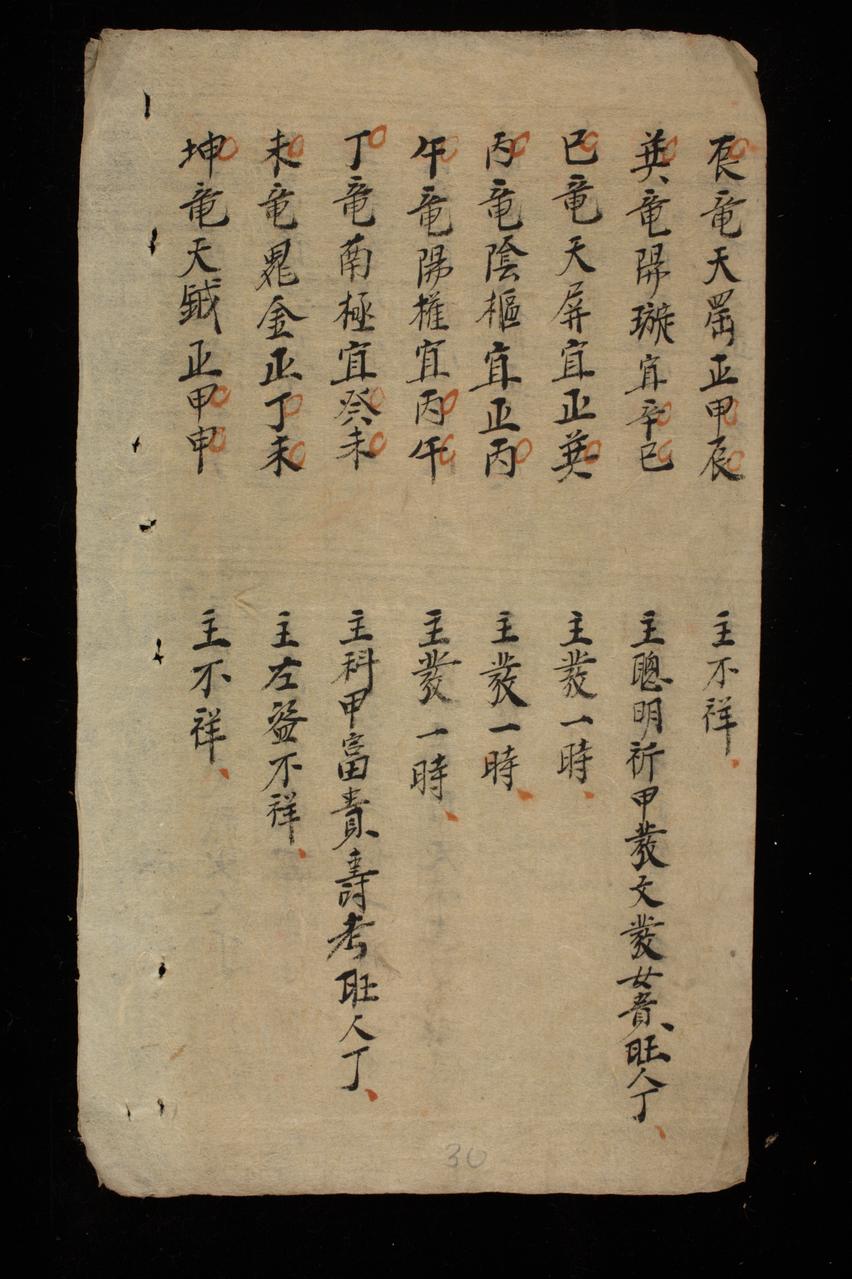 辰竜天罡正甲辰 主不祥
巽竜陽璇宜辛巳 主聰明祈甲發文發女貴旺人丁
巳竜天屏宜正巽 主發一時
丙竜陰樞宜正丙 主發一時
午竜陽權宜丙午 主發一時
丁竜南極宜癸未 主科甲富貴壽考旺人丁
未竜鬼金正丁未 主左盜不祥
坤竜天鉞正甲申 主不祥
30